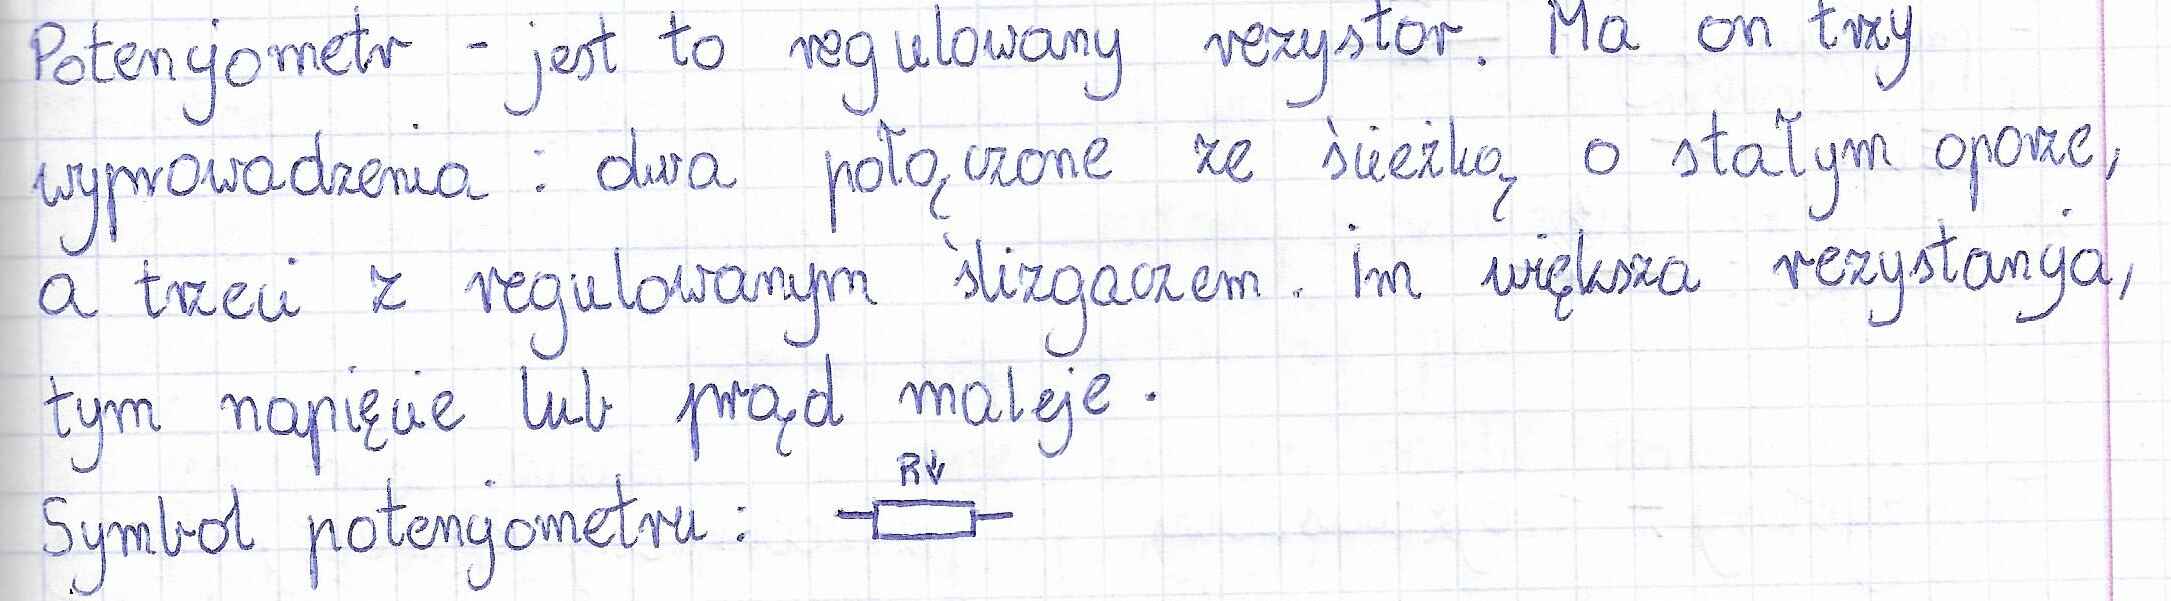 Potencjometr - jest to regulowany rezystor. Ma on trzy
wyprowadzenia : dwa połączone ze ścieżką o stałym oporze,
a trzeci z regulowanym ślizgaczem. Im większa rezystancja,
tym napięcie lub prąd maleje.
Symbol potencjometru : R↓